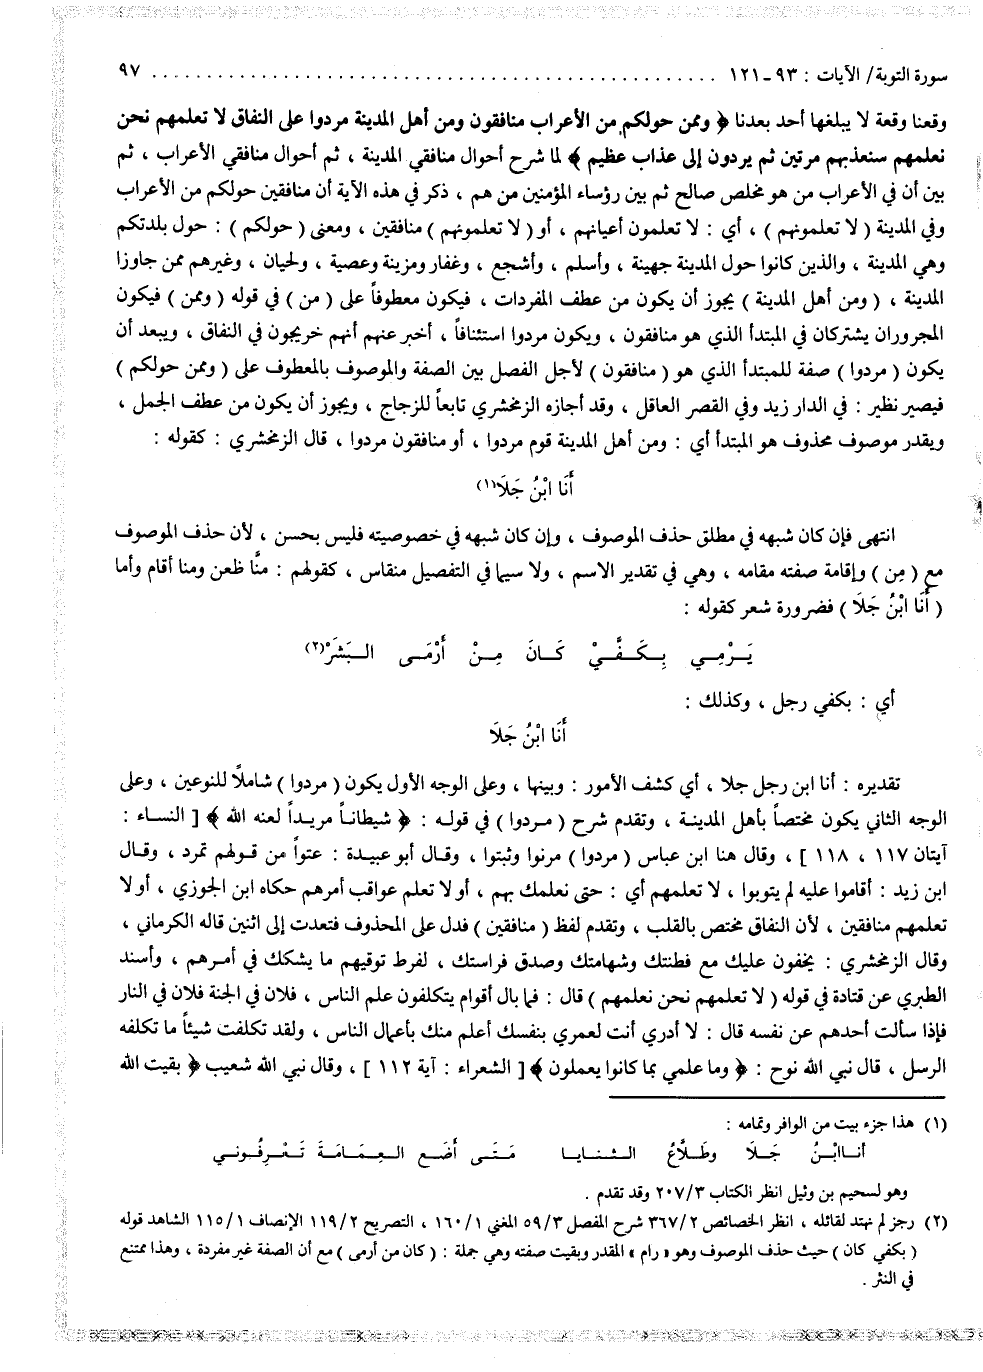 سورة التوبة/ الآيات : ٩٣ - ١٢١ ........................................................ ٩٧
وقعنا وقعة لا يبلغها أحد بعدنا ﴿ وممن حولكم من الأعراب منافقون ومن أهل المدينة مردوا على النفاق لا تعلمهم نحن
نعلمهم سنعذبهم مرتين ثم يردون إلى عذاب عظيم ﴾ لما شرح أحوال منافقي المدينة ، ثم أحوال منافقي الأعراب ، ثم
بين أن في الأعراب من هو مخلص صالح ثم بين رؤساء المؤمنين من هم ، ذكر في هذه الآية أن منافقين حولكم من الأعراب
وفي المدينة ( لا تعلمونهم ) ، أي : لا تعلمون أعيانهم ، أو ( لا تعلمونهم ) منافقين ، ومعنى ( حولكم ) : حول بلدتكم
وهي المدينة ، والذين كانوا حول المدينة جهينة ، وأسلم ، وأشجع ، وغفار ومزينة وعصية ، ولحيان ، وغيرهم ممن جاوزا
المدينة ، ( ومن أهل المدينة ) يجوز أن يكون من عطف المفردات ، فيكون معطوفاً على ( من ) في قوله ( وممن ) فيكون
المجروران يشتركان في المبتدأ الذي هو منافقون ، ويكون مردوا استئنافاً ، أخبر عنهم أنهم خريجون في النفاق ، ويبعد أن
يكون ( مردوا ) صفة للمبتدأ الذي هو ( منافقون ) لأجل الفصل بين الصفة والموصوف بالمعطوف على ( وممن حولكم )
فيصير نظير : في الدار زيد وفي القصر العاقل ، وقد أجازه الزمخشري تابعاً للزجاج ، ويجوز أن يكون من عطف الجمل ،
ويقدر موصوف محذوف هو المبتدأ أي : ومن أهل المدينة قوم مردوا ، أو منافقون مردوا ، قال الزمخشري : كقوله :
أَنَا ابْنُ جَلَا(١)
انتهى فإن كان شبهه في مطلق حذف الموصوف ، وإن كان شبهه في خصوصيته فليس بحسن ، لأن حذف الموصوف
مع ( مِن ) وإقامة صفته مقامه ، وهي في تقدير الاسم ، ولا سيما في التفصيل منقاس ، كقولهم : منَّا ظعن ومنا أقام وأما
( أَنَا ابْنُ جَلَا ) فضرورة شعر كقوله :
يَـرْمِـي بِـكَـفَّـيْ كَـانَ مِـنْ أَرْمَـى الـبَـشَـرْ(٢)
أي : بكفي رجل ، وكذلك :
أَنَا ابْنُ جَلَا
تقديره : أنا ابن رجل جلا ، أي كشف الأمور : وبينها ، وعلى الوجه الأول يكون ( مردوا ) شاملاً للنوعين ، وعلى
الوجه الثاني يكون مختصاً بأهل المدينـة ، وتقدم شرح ( مـردوا ) في قولـه : ﴿ شيطانـاً مريـداً لعنه الله ﴾ [ النسـاء :
آيتان ١١٧ ، ١١٨ ] ، وقال هنا ابن عباس ( مردوا ) مرنوا وثبتوا ، وقال أبو عبيدة : عتواً من قـولهم تمرد ، وقـال
ابن زيد : أقاموا عليه لم يتوبوا ، لا تعلمهم أي : حتى نعلمك بهم ، أو لا تعلم عواقب أمرهم حكاه ابن الجوزي ، أو لا
تعلمهم منافقين ، لأن النفاق مختص بالقلب ، وتقدم لفظ ( منافقين ) فدل على المحذوف فتعدت إلى اثنين قاله الكرماني ،
وقال الزمخشري : يخفون عليك مع فطنتك وشهامتك وصدق فراستك ، لفرط توقيهم ما يشكك في أمـرهم ، وأسند
الطبري عن قتادة في قوله ( لا تعلمهم نحن نعلمهم ) قال : فما بال أقوام يتكلفون علم الناس ، فلان في الجنة فلان في النار
فإذا سألت أحدهم عن نفسه قال : لا أدري أنت لعمري بنفسك أعلم منك بأعمال الناس ، ولقد تكلفت شيئاً ما تكلفه
الرسل ، قال نبي الله نوح : ﴿ وما علمي بما كانوا يعملون ﴾ [ الشعراء : آية ١١٢ ] ، وقال نبي الله شعيب ﴿ بقيت الله
(١) هذا جزء بيت من الوافر وتمامه :
أنـا ابْـنُ جَـلَا وطَـلَّاعُ الـثـنـايـا مَـتَـى أَضَـعِ الـعِـمَـامَـةَ تَـعْـرِفُـونـي
وهو لسحيم بن وثيل انظر الكتاب ٢٠٧/٣ وقد تقدم .
(٢) رجز لم نهتد لقائله ، انظر الخصائص ٣٦٧/٢ شرح المفصل ٥٩/٣ المغني ١٦٠/١ ، التصريح ١١٩/٢ الإنصاف ١١٥/١ الشاهد قوله
( بكفي كان ) حيث حذف الموصوف وهو « رام » المقدر وبقيت صفته وهي جملة : ( كان من أرمى ) مع أن الصفة غير مفردة ، وهذا ممتنع
في النثر .